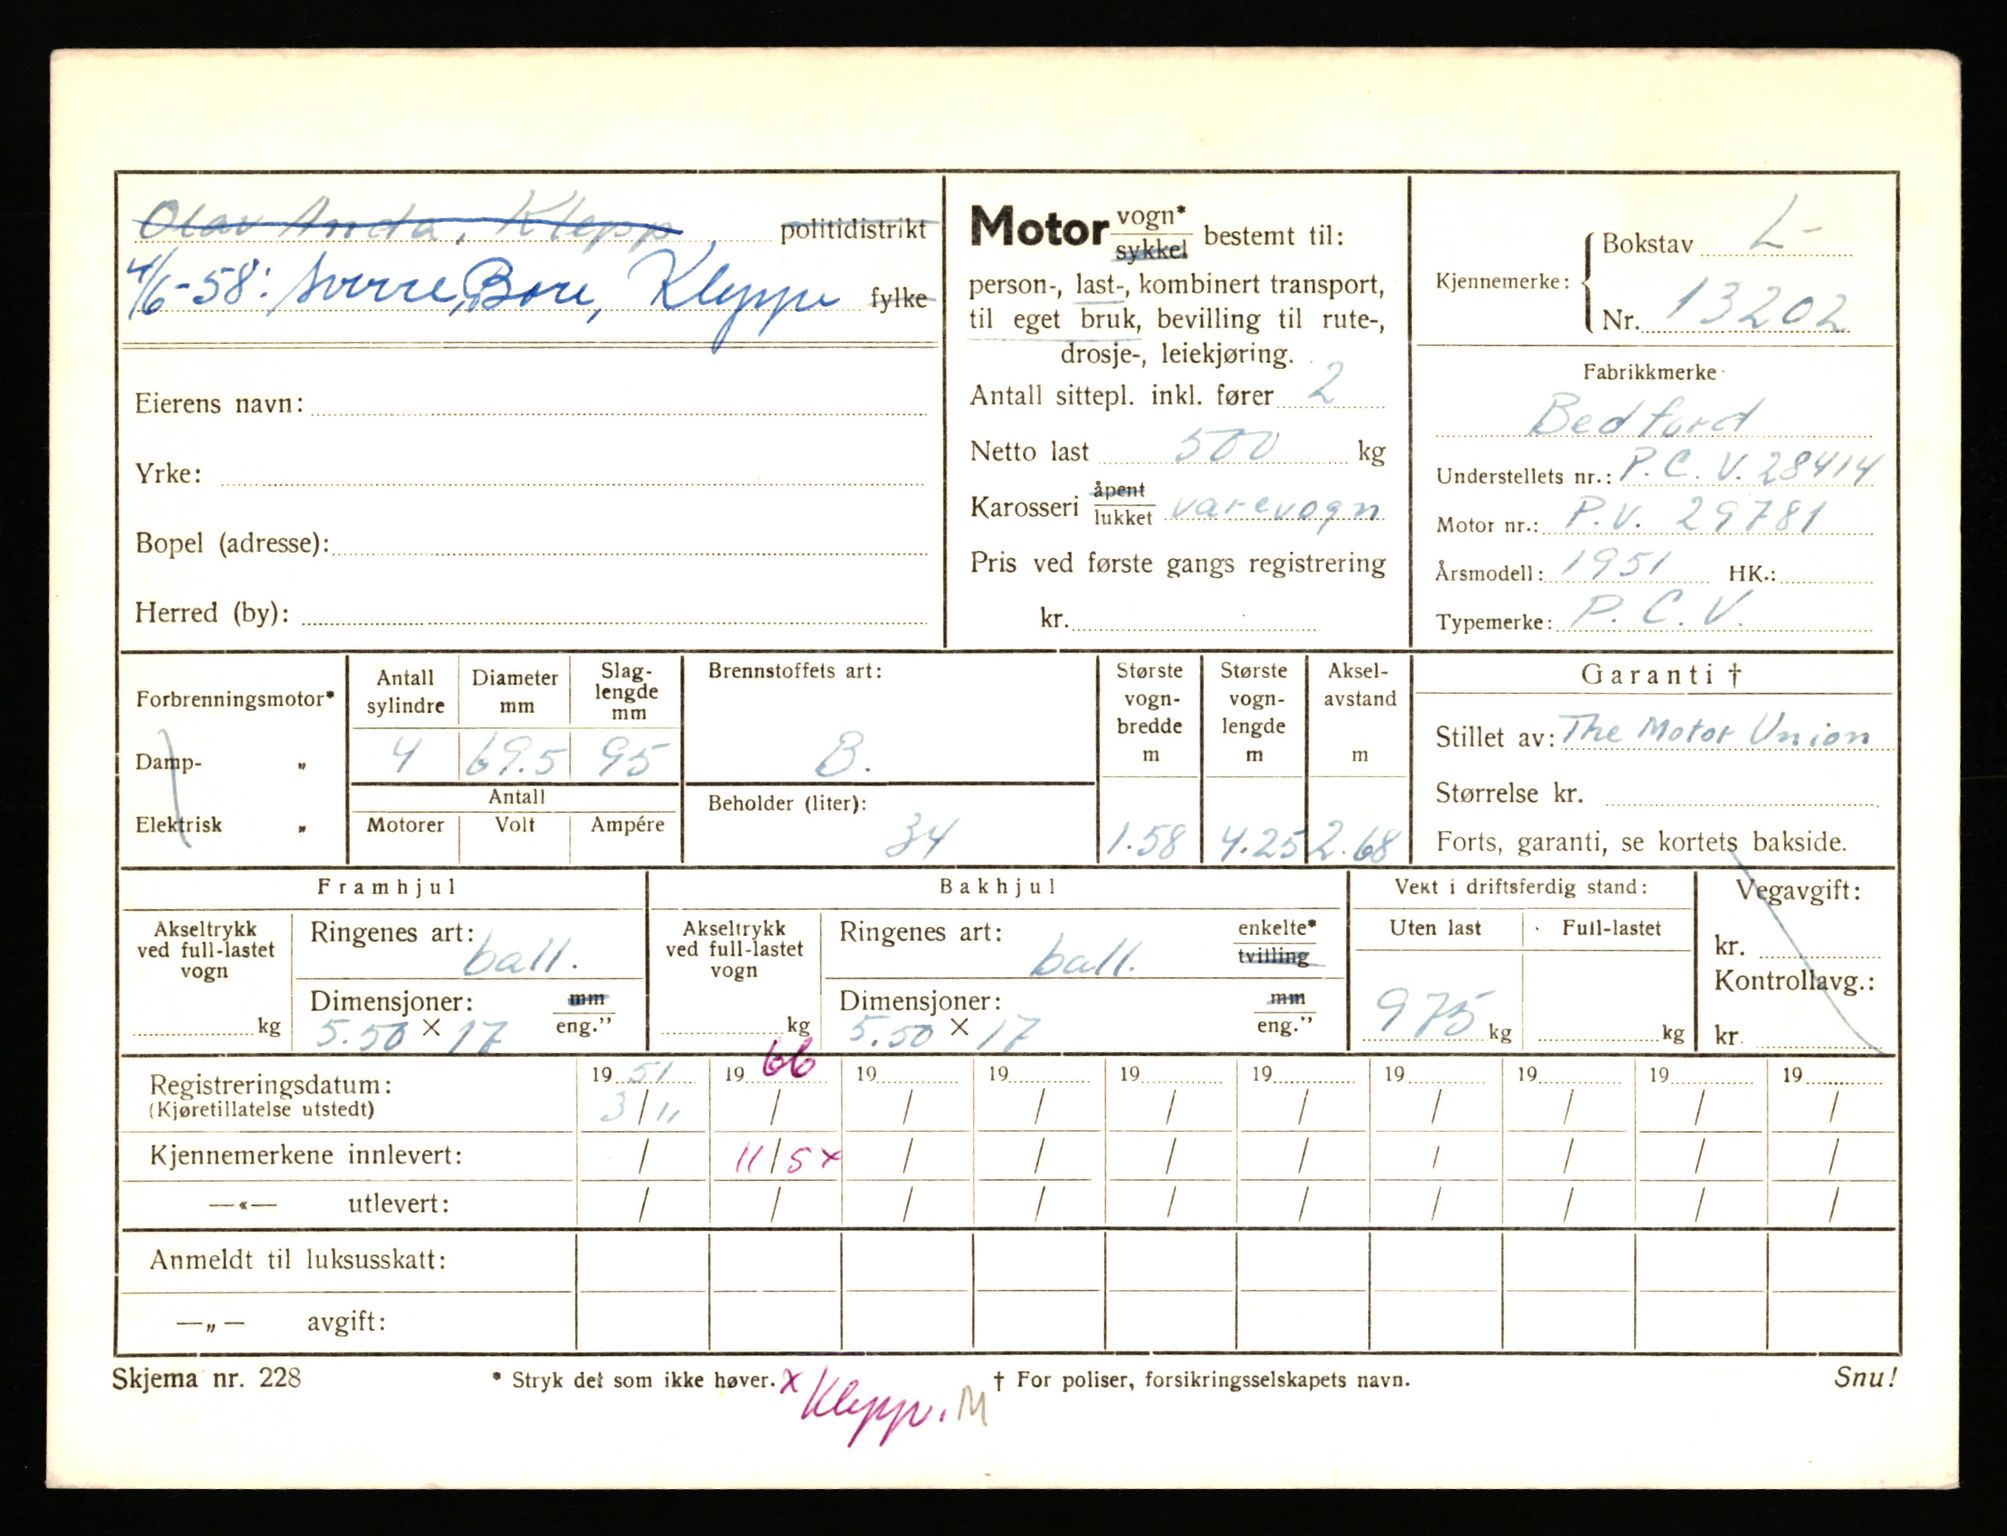 Olav Anda, Klepp politidistrikt
4/6-58: Sverre Bore, Kleppe fylke
Eierens navn:
Yrke:
Bopel (adresse):
Herred (by):
Motor vogn* sykkel bestemt til:
person-, last-, kombinert transport,
til eget bruk, bevilling til rute-,
drosje-, leiekjøring.
Antall sittepl. inkl. fører 2
Netto last 500 kg
Karosseri åpent lukket varevogn
Pris ved første gangs registrering
kr.
Kjennemerke: Bokstav L-
Nr. 13202
Fabrikkmerke
Bedford
Understellets nr.: P.C.V. 28414
Motor nr.: P.V. 29781
Årsmodell: 1951 HK.:
Typemerke: P.C.V.
Forbrenningsmotor*
Damp- „
Elektrisk „
Antall sylindre 4
Diameter mm 69.5
Slag-lengde mm 95
Antall
Motorer Volt Ampére
Brennstoffets art:
B.
Beholder (liter):
34
Største vogn-bredde m 1.58
Største vogn-lengde m 4.25
Aksel-avstand m 2.68
Garanti †
Stillet av: The Motor Union
Størrelse kr.
Forts, garanti, se kortets bakside.
Framhjul
Akseltrykk ved full-lastet vogn
kg
Ringenes art: ball.
Dimensjoner: mm eng.”
5.50 × 17
Bakhjul
Akseltrykk ved full-lastet vogn
kg
Ringenes art: ball. enkelte* tvilling
Dimensjoner: mm eng.”
5.50 × 17
Vekt i driftsferdig stand:
Uten last Full-lastet
975 kg kg
Vegavgift:
kr.
Kontrollavg.:
kr.
Registreringsdatum: 19 51 19 66 19 19 19 19 19 19 19 19
(Kjøretillatelse utstedt) 3/11 / / / / / / / / /
Kjennemerkene innlevert: / 11/5 x / / / / / / / /
—«— utlevert: / / / / / / / / / /
Anmeldt til luksusskatt:
—„— avgift:
Skjema nr. 228 * Stryk det som ikke høver. x Klepp. M † For poliser, forsikringsselskapets navn. Snu!